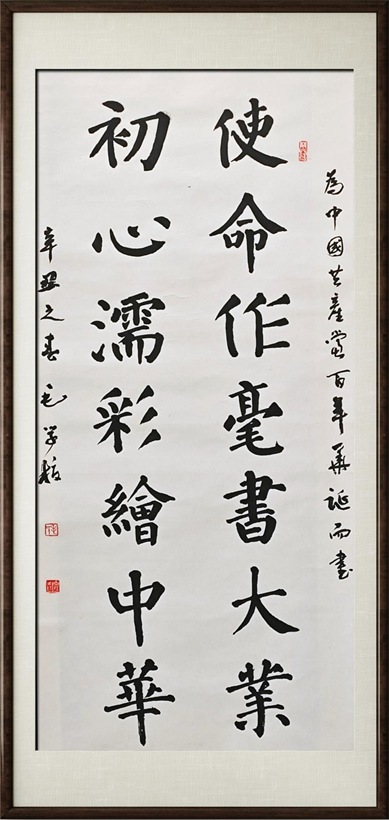 為中國共產黨百年華誕而書
使命作毫書大業
初心濡彩繪中華
辛丑之春毛学